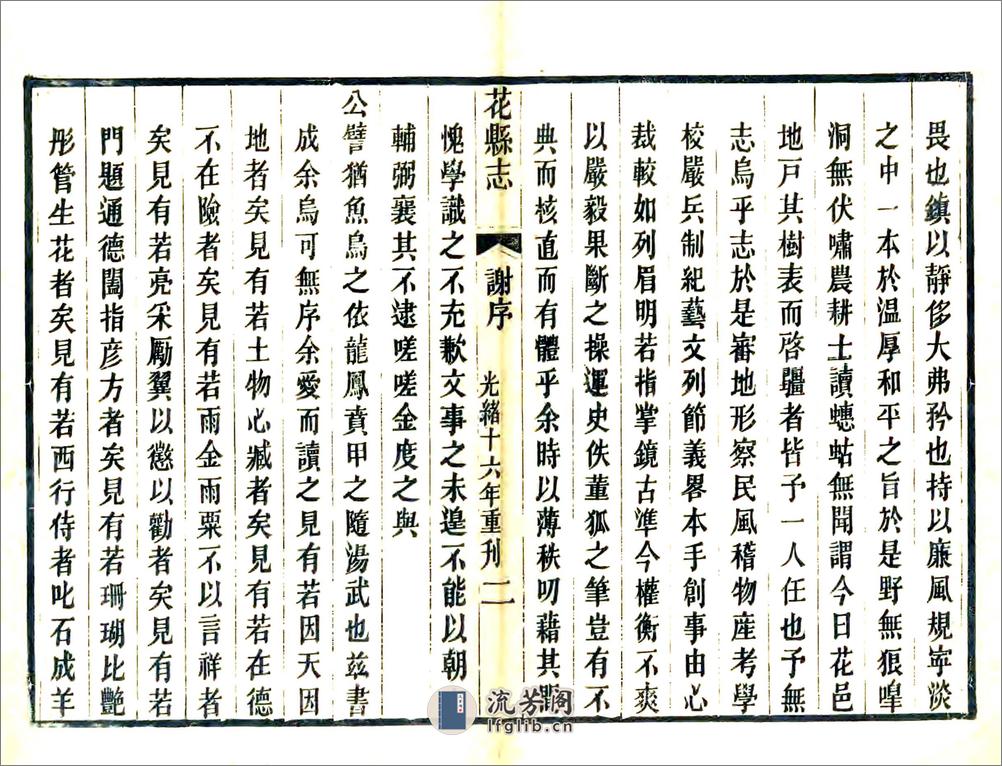 畏也鎮以靜侈大弗矜也持以廉風規寧淡
之中一本於溫厚和平之旨於是野無狼嘷
洞無伏嘯農耕士讀蟪蛄無聞謂今日花邑
地戸其樹表而啓疆者皆予一人任也予無
志烏乎志於是審地形察民風稽物產考學
校嚴兵制紀藝文列節義畧本手創事由心
裁較如列眉明若指掌鏡古準今權衡不爽
以嚴毅果斷之操運史佚董狐之筆豈有不
典而核直而有體乎余時以薄秩叨藉其
花縣志
謝序
光緒十六年重刊
二
愧學識之不充歉文事之未遑不能以朝
輔弼襄其不逮嗟嗟金度之與
公譬猶魚鳥之依龍鳳賁甲之隨湯武也兹書
成余烏可無序余愛而讀之見有若因天因
地者矣見有若土物心臧者矣見有若在德
不在險者矣見有若雨金雨粟不以言祥者
矣見有若亮采勵翼以懲以勸者矣見有若
門題通德閭指彦方者矣見有若珊瑚比艷
彤管生花者矣見有若西行侍者叱石成羊
流芳閣
lfglib.cn